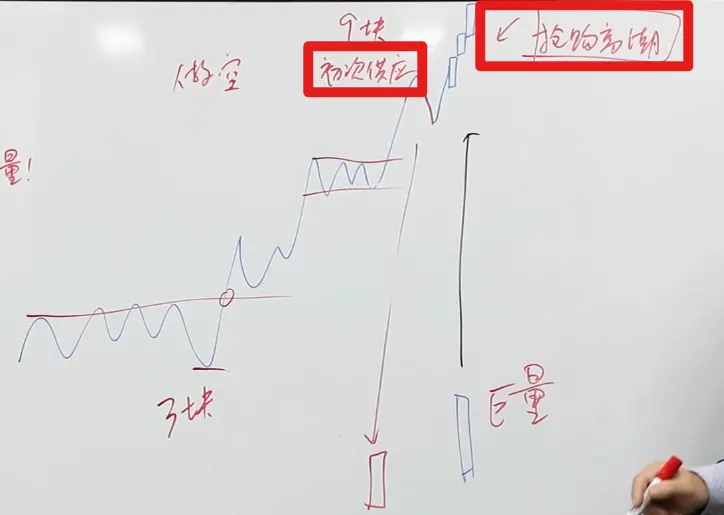 9块
初次供应
抢购高潮
做空
量!
3块
巨量